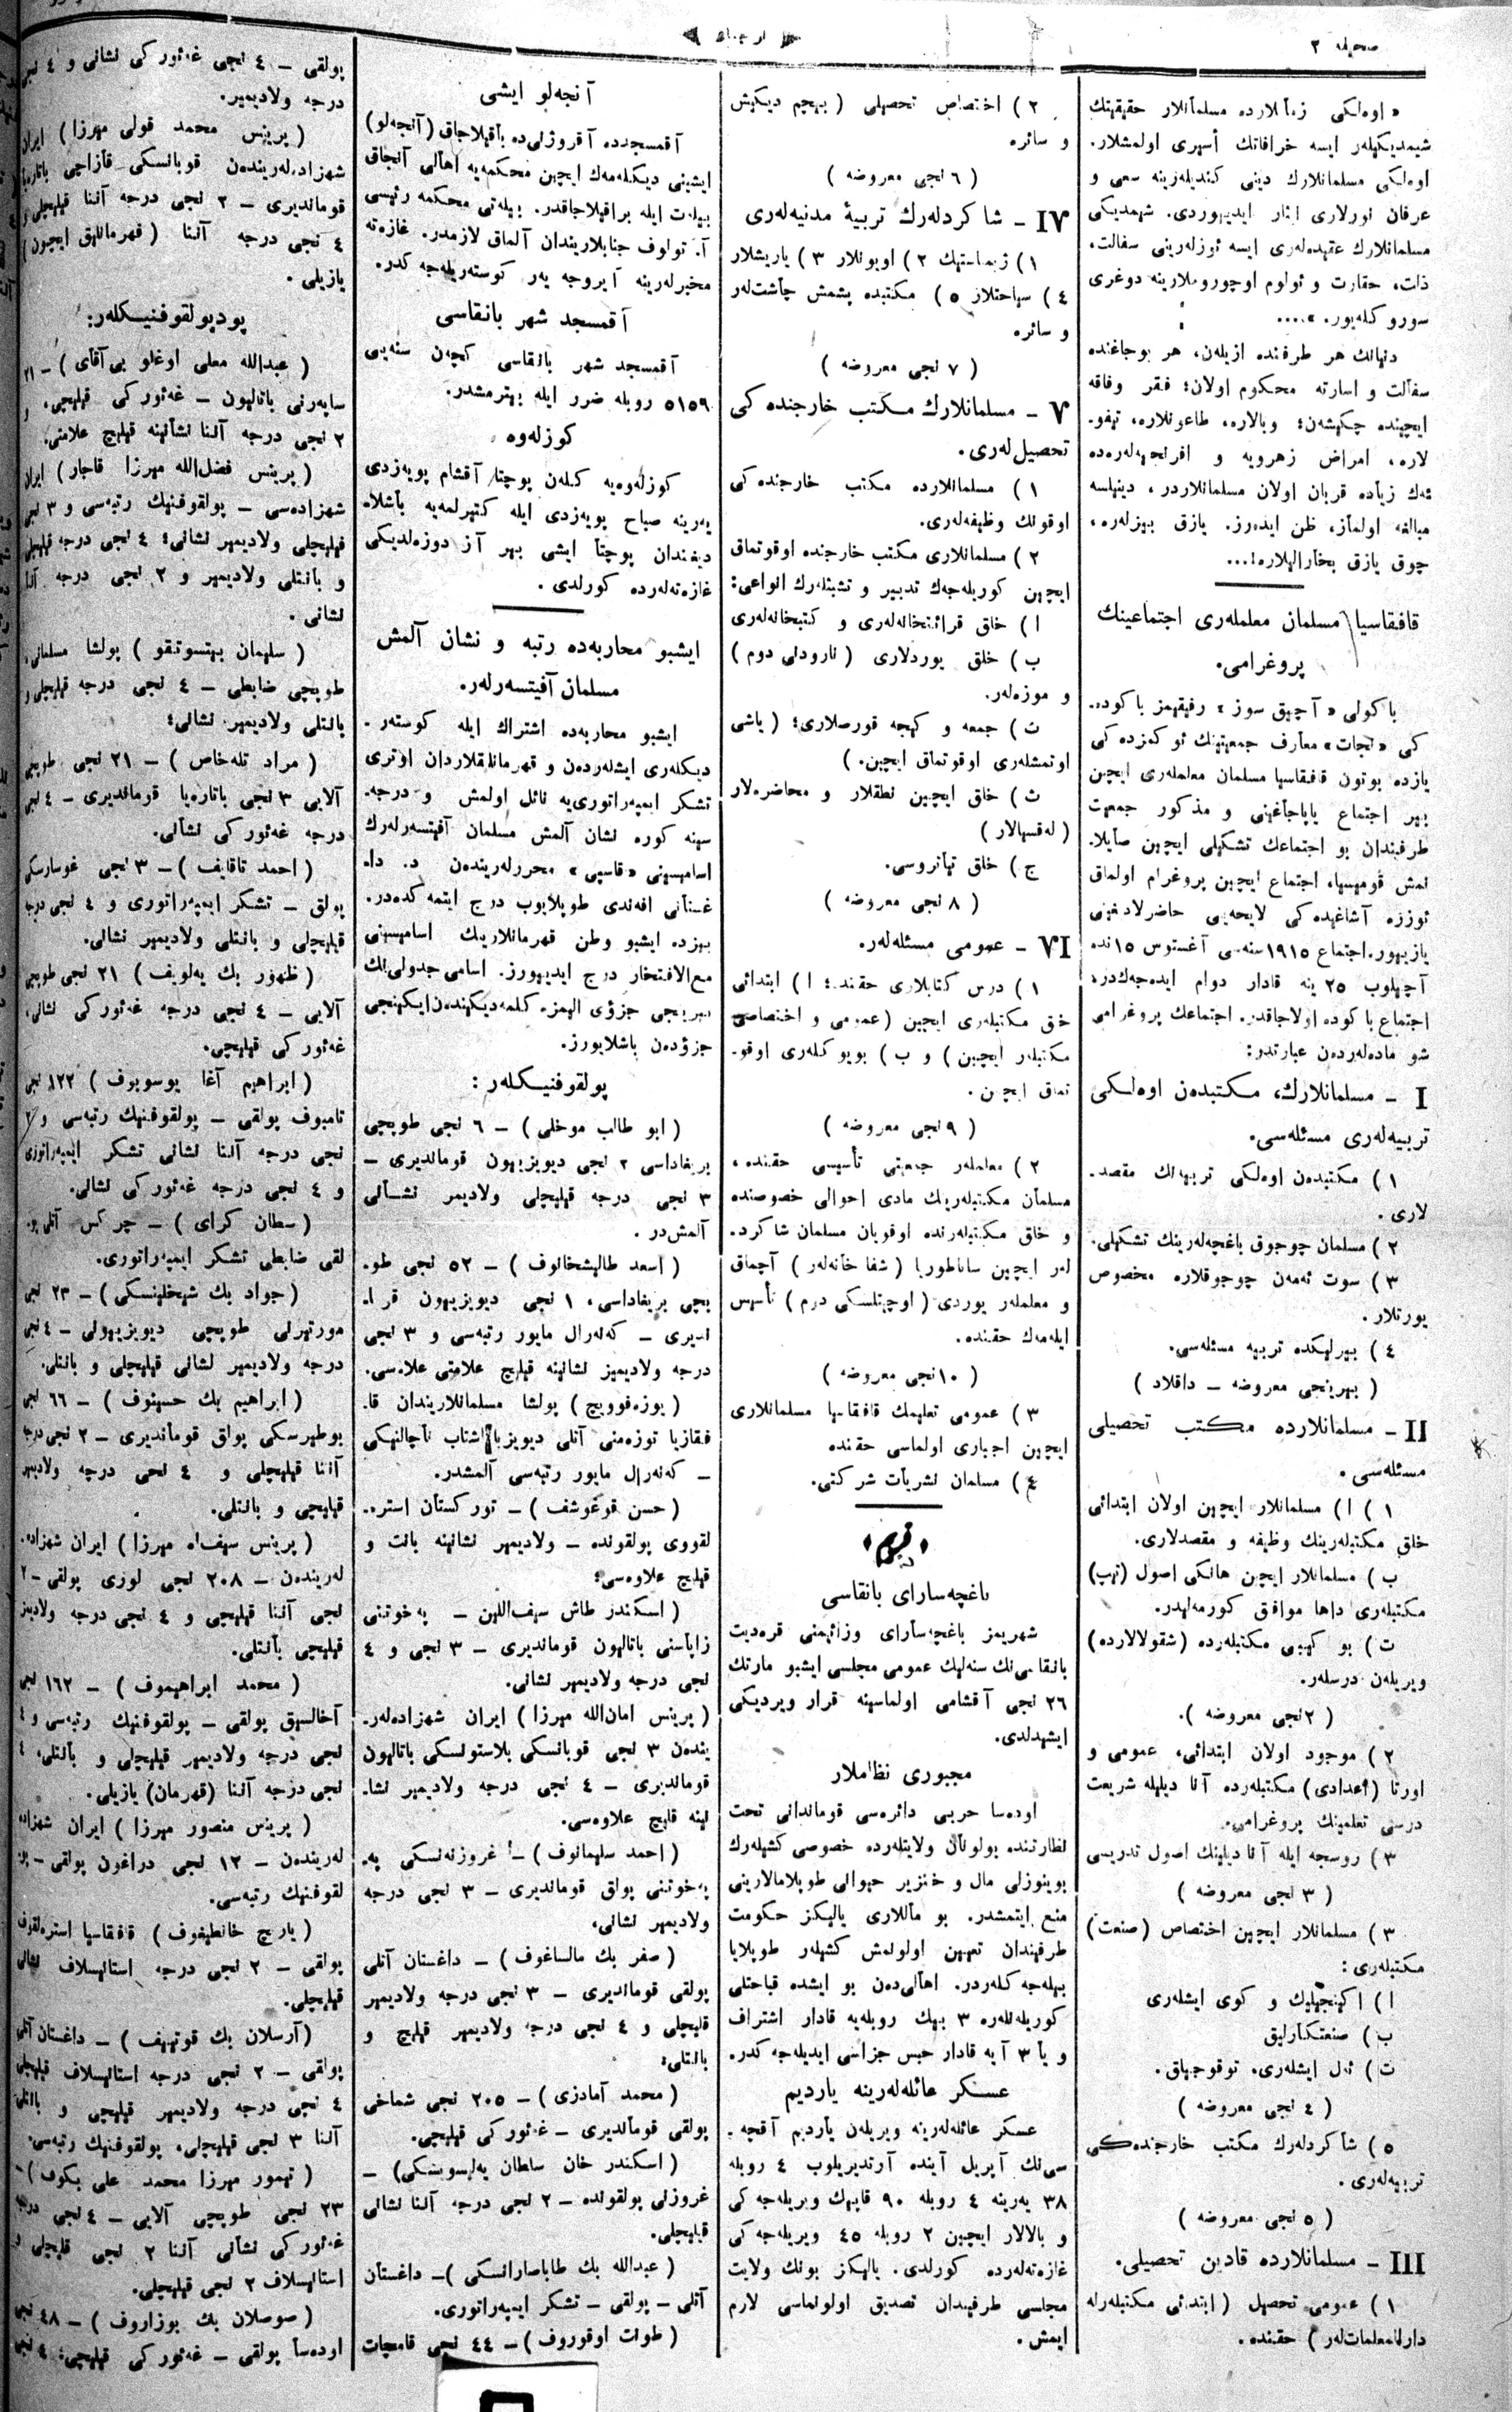 صحیفه ٢
ترجمان
« اوەلكی زمانلارده مسلمانلار حقیقتك
شیمدیكیلەر ایسه خرافاتك أسیری اولمشلار.
اوەلكی مسلمانلارك دینی كندیلەرینه سعی و
عرفان نورلاری ایثار ایدییوردی. شیمدیكی
مسلمانلارك عقیدەلەری ایسه ئوزلەرینی سفالت،
ذلت، حقارت و ئولوم اوچوروملارینه دوغری
سوروكلەیور. »....
دنیانك هر طرفنده ازیلەن، هر بوجاغنده
سفالت و اسارته محكوم اولان؛ فقر وفاقه
ایچینده چكیشەن؛ وبالاره، طاعونلاره، تیفو-
لاره، امراض زهرویه و افرنجیەلەرەده
ئەك زیاده قربان اولان مسلمانلاردر، دینیلسه
مبالغه اولماز، ظن ایدەرز. یازق بیزلەره،
چوق یازق بخارالیلاره!...
قافقاسیا مسلمان معلملەری اجتماعینك
پروغرامی.
باكولی « آچیق سوز » رفیقیمز باكودە-
كی «نجات» معارف جمعیتینك ئوكمزدەكی
یازده بوتون قافقاسیا مسلمان معلملەری ایچین
بیر اجتماع یاپاجاغینی و مذكور جمعیت
طرفیندان بو اجتماعك تشكیلی ایچین صایلا-
نمش قومیسیا، اجتماع ایچین پروغرام اولماق
ئوززه آشاغیدەكی لایحەیی حاضرلادیغینی
یازیور. اجتماع ١٩١٥ سنەسی آغستوس ١٥ نده
آچیلوب ٢٥ ینه قادار دوام ایدەجەكدر.
اجتماع باكوده اولاجاقدر. اجتماعك پروغرامی
شو مادەلەردەن عبارتدر:
I - مسلمانلارك، مكتبدەن اوەلكی
تربیەلەری مسئلەسی.
١) مكتبدەن اوەلكی تربیەنك مقصد-
لاری.
٢) مسلمان چوجوق باغچەلەرینك تشكیلی.
٣) سوت ئەمەن چوجوقلاره مخصوص
یورتلار.
٤) بیرلیكده تربیه مسئلەسی.
( بیرینجی معروضه – داقلاد )
II - مسلمانلارده مكتب تحصیلی
مسئلەسی.
١) ا) مسلمانلار ایچین اولان ابتدائی
خلق مكتبلەرینك وظیفه و مقصدلاری.
ب) مسلمانلار ایچین هانكی اصول (تیپ)
مكتبلەری داها موافق كورمەلیدر.
ت) بو كیبی مكتبلەرده (شقولالارده)
ویریلەن درسلەر.
( ٢ نجی معروضه ).
٢) موجود اولان ابتدائی، عمومی و
اورتا (اعدادی) مكتبلەرده آنا دیلیله شریعت
درسی تعلمینك پروغرامی.
٣) روسجه ایله آنا دیلینك اصول تدریسی
( ٣ نجی معروضه )
٣) مسلمانلار ایچین اختصاص (صنعت)
مكتبلەری:
ا) اكینجیلیك و كوی ایشلەری
ب) صنعتكارلیق
ت) ئەل ایشلەری. توقوجیلق.
( ٤ نجی معروضه )
٥) شاكردلەرك مكتب خارجندەكی
تربیەلەری.
( ٥ نجی معروضه )
III - مسلمانلارده قادین تحصیلی.
١) عمومی تحصیل ( ابتدائی مكتبلەرله
دارالمعلماتلەر ) حقنده.
٢) اختصاص تحصیلی ( بیچیم دیكیش
و سائره
( ٦ نجی معروضه )
IV - شاكردلەرك تربیهٔ مدنیەلەری
١) ژیمناستیك ٢) اویونلار ٣) یاریشلار
٤) سیاحتلار ٥) مكتبده پشمش چآشتلەر
و سائره
( ٧ نجی معروضه )
V - مسلمانلارك مكتب خارجندەكی
تحصیللەری.
١) مسلمانلارده مكتب خارجندەكی
اوقونك وظیفەلەری.
٢) مسلمانلاری مكتب خارجنده اوقوتماق
ایچین كوریلەجەك تدبیر و تشبثلەرك انواعی:
ا) خلق قرائتخانەلەری و كتبخانەلەری
ب) خلق یوردلاری ( نارودنی دوم )
و موزەلەر.
ت) جمعه و كیجه قورصلاری؛ ( یاشی
اوتمشلەری اوقوتماق ایچین. )
ث) خلق ایچین نطقلار و محاضرەلار
( لەقسیالار )
ج) خلق تیاتروسی.
( ٨ نجی معروضه )
VI - عمومی مسئلەلەر.
١) درس كتابلاری حقنده؛ ا) ابتدائی
خلق مكتبلەری ایچین (عمومی و اختصاصی
مكتبلەر ایچین) و ب) بویوكلەری اوقو-
تماق ایچین.
( ٩ نجی معروضه )
٢) معلملەر جمعیتی تأسیسی حقنده،
مسلمان مكتبلەرینك مادی احوالی خصوصنده
و خلق مكتبلەرنده اوقویان مسلمان شاكرد-
لەر ایچین ساناطوریا (شفاخانەلەر) آچماق
و معلملەر یوردی (اوچیتلسكی دوم) تأسیس
ایلەمەك حقنده.
( ١٠ نجی معروضه )
٣) عمومی تعلیمك قافقاسیا مسلمانلاری
ایچین اجباری اولماسی حقنده
٤) مسلمان نشریات شركتی.
قریم
باغچەسارای بانقاسی
شهریمز باغچەسارای وزائیمنی قرەدیت
بانقاسینك سنەلیك عمومی مجلسی ایشبو مارتك
٢٦ نجی آقشامی اولماسینه قرار ویردیكی
ایشیدلدی.
مجبوری نظاملار
اودەسا حربی دائرەسی قوماندانی تحت
نظارتنده بولونان ولایتلەرده خصوصی كشیلەرك
بوینوزلی مال و خنزیر حیوانی طوپلامالارینی
منع ایتمشدر. بو ماللاری یالیكز حكومت
طرفیندان تعیین اولونمش كشیلەر طوپلایا
بیلەجەكلەردر. اهالیدەن بو ایشده قباحتلی
كوریلەنلەره ٣ بیك روبلەیه قادار اشتراف
و یا ٣ آیه قادار حبس جزاسی ایدیلەجەكدر.
عسكر عائلەلەرینه یاردیم
عسكر عائلەلەرینه ویریلەن یاردیم آقچە-
سینك آپریل آینده آرتدیریلوب ٤ روبله
٣٨ یەرینه ٤ روبله ٩٠ قاپیك ویریلەجەكی
و بالالار ایچین ٢ روبله ٤٥ ویریلەجەكی
غازەتەلەرده كورلدی. یالیكز بونك ولایت
مجلسی طرفیندان تصدیق اولونماسی لازم
ایمش.
آنجەلو ایشی
آقمسجدده آقروژنیده باقیلاجاق (آنجەلو)
ایشینی دیكلەمەك ایچین محكمەیه اهالی آنجاق
بیلەت ایله براقیلاجاقدر. بیلەتی محكمه رئیسی
آ. تولوف جنابلاریندان آلماق لازمدر. غازەته
مخبرلەرینه آیروجه یەر كوستەریلەجەكدر.
آقمسجد شهر بانقاسی
آقمسجد شهر بانقاسی كچەن سنەیی
٥١٥٩ روبله ضرر ایله بیترمشدر.
كوزلەوه
كوزلەوەیه كلەن پوچتا آقشام پویەزدی
یەرینه صباح پویەزدی ایله كتیرلمەیه باشلا-
دیغندان پوچتا ایشی بیر آز دوزەلدیكی
غازەتەلەرده كورلدی.
ایشبو محاربەده رتبه و نشان آلمش
مسلمان آفیتسەرلەر.
ایشبو محاربەده اشتراك ایله كوستەر-
دیكلەری ایشلەردەن و قهرمانلقلاردان اوتری
تشكر ایمپەراتورییه نائل اولمش و درجە-
سینه كوره نشان آلمش مسلمان آفیتسەرلەرك
اسامیسینی «قاسپی» محررلەریندەن د. دا-
غستانی افەندی طوپلایوب درج ایتمەكدەدر.
بیزده ایشبو وطن قهرمانلارینك اسامیسینی
مع الافتخار درج ایدییورز. اسامی جدولینك
بیرینجی جزؤی الیمزه كلمەدیكیندەن ایكینجی
جزؤدەن باشلایورز.
پولقوفنیكلەر:
( ابو طالب موخلی ) – ٦ نجی طوپچی
بریغاداسی ٢ نجی دیویزییون قوماندیری –
٣ نجی درجه قیلیچلی ولادیمر نشانی
آلمشدر.
( اسعد طالیشخانوف ) – ٥٢ نجی طو-
پچی بریغاداسی، ١ نجی دیویزییون قوما-
ندیری – كەنەرال مایور رتبەسی و ٣ نجی
درجه ولادیمیر نشانینه قیلیچ علامتی علاوەسی.
( یوزەفوویچ ) پولشا مسلمانلاریندان قا-
فقازیا توزەمنی آتلی دیویزیا اشتاب ناچالنیكی
– كەنەرال مایور رتبەسی آلمشدر.
( حسن قوغوشف ) – توركستان استرە-
لقووی پولقونده – ولادیمیر نشانینه بانت و
قیلیچ علاوەسی؛
( اسكندر طاش سیف‌اللین – یەخوتنی
زاپاسنی باتالیون قوماندیری – ٣ نجی و ٤
نجی درجه ولادیمیر نشانی.
( پرینس امان‌الله میرزا ) ایران شهزادەلەر-
یندەن ٣ نجی قوبانسكی پلاستونسكی باتالیون
قوماندیری – ٤ نجی درجه ولادیمیر نشا-
نینه قلیچ علاوەسی.
( احمد سلیمانوف ) – غروزنەنسكی پە-
یەخوتنی پولق قوماندیری – ٣ نجی درجه
ولادیمیر نشانی،
( صفر بك مالساغوف ) – داغستان آتلی
پولقی قوماندیری – ٣ نجی درجه ولادیمیر
قلیچلی و ٤ نجی درجه ولادیمیر قیلیچ و
بانتلی؛
( محمد آمادزی ) – ٢٠٥ نجی شماخی
پولقی قوماندیری – غەئوركی قیلیچی.
( اسكندر خان سلطان یەلیسویسكی) –
غروزنی پولقونده – ٢ نجی درجه آننا نشانی
قیلیچلی.
( عبدالله بك طاباصارانسكی ) – داغستان
آتلی – پولقی – تشكر ایمپەراتوری.
( طوات اوقوروف ) – ٤٤ نجی قامچات
پولقی – ٤ نجی غەئوركی نشانی و ٤ نجی
درجه ولادیمیر.
( پرینس محمد قولی میرزا ) ایران
شهزادەلەریندەن قوبانسكی قازاچی باتارەیا
قوماندیری – ٢ نجی درجه آننا قیلیچلی و
٤ نجی درجه آننا ( قهرمانلیق ایچون )
یازیلی.
پودپولقوفنیكلەر:
( عبدالله معلی اوغلو بی آقای ) – ٢١
ساپەرنی باتالیون – غەئوركی قیلیچی، و
٢ نجی درجه آننا نشانینه قیلیچ علامتی.
( پرینس فضل‌الله میرزا قاجار ) ایران
شهزادەسی – پولقوفنیك رتبەسی و ٣ نجی
قیلیچلی ولادیمیر نشانی؛ ٤ نجی درجه قیلیچلی
و بانتلی ولادیمیر و ٢ نجی درجه آننا
نشانی.
( سلیمان ) پولشا مسلمانی،
طوپچی ضابطی – ٤ نجی درجه قیلیچلی و
بانتلی ولادیمیر نشانی؛
( مراد تلەخاص ) – ٢١ نجی طوپچی
آلایی ٣ نجی باتارەیا قوماندیری – ٤ نجی
درجه غەئوركی نشانی.
( احمد تاقایف ) – ٣ نجی غوسارسكی
پولق – تشكر ایمپەراتوری و ٤ نجی درجه
قیلیچلی و بانتلی ولادیمیر نشانی.
( ظهور بك یەلویف ) ٢١ نجی طوپچی
آلایی – ٤ نجی درجه غەئوركی نشانی،
غەئوركی قیلیچی.
( ابراهیم آغا یوسوپوف ) ١٢٢ نجی
تامبوف پولقی – پولقوفنیك رتبەسی و ٢
نجی درجه آننا نشانی تشكر ایمپەراتوری
و ٤ نجی درجه غەئوركی نشانی.
( سلطان كرای ) – چركس آتلی پو-
لقی ضابطی تشكر ایمپەراتوری.
( جواد بك شیخلینسكی ) – ٢٣ نجی
مورتیرلی طوپچی دیویزییونی – ٤ نجی
درجه ولادیمیر نشانی قیلیچلی و بانتلی.
( ابراهیم بك حسینوف ) – ٦٦ نجی
بوطیرسكی پولق قوماندیری – ٢ نجی درجه
آننا قیلیچلی و ٤ نجی درجه ولادیمیر
قیلیچی و بانتلی.
( پرینس سیف‌الله میرزا ) ایران شهزادە-
لەریندەن – ٢٠٨ نجی لوری پولقی – ٢
نجی آننا قیلیچی و ٤ نجی درجه ولادیمیر
قیلیچی بانتلی.
( محمد ابراهیموف ) – ١٦٢ نجی
آخالسیق پولقی – پولقوفنیك رتبەسی و ٤
نجی درجه ولادیمیر قیلیچلی و بانتلی، ٤
نجی درجه آننا (قهرمان) یازیلی.
( پرینس منصور میرزا ) ایران شهزاده
لەریندەن – ١٢ نجی دراغون پولقی – پو-
لقوفنیك رتبەسی.
( خانطیغوف ) قافقاسیا استرەلقوف
پولقی – ٢ نجی درجه استانیسلاف نشانی
قیلیچلی.
( آرسلان بك قوتییف ) – داغستان آتلی
پولقی – ٢ نجی درجه استانیسلاف قیلیچلی
٤ نجی درجه ولادیمیر قیلیچی و بانتلی
آننا ٣ نجی قیلیچلی، پولقوفنیك رتبەسی.
( تیمور میرزا محمد علی بكوف ) –
٢٣ نجی طوپچی آلایی – ٤ نجی درجه
غەئوركی نشانی آننا ٢ نجی قلیچلی و
استانیسلاف ٢ نجی قیلیچلی.
( صوصلان بك بوزاروف ) – ٤٨ نجی
اودەسا پولقی – غەئوركی قیلیچی؛ ٤ نجی